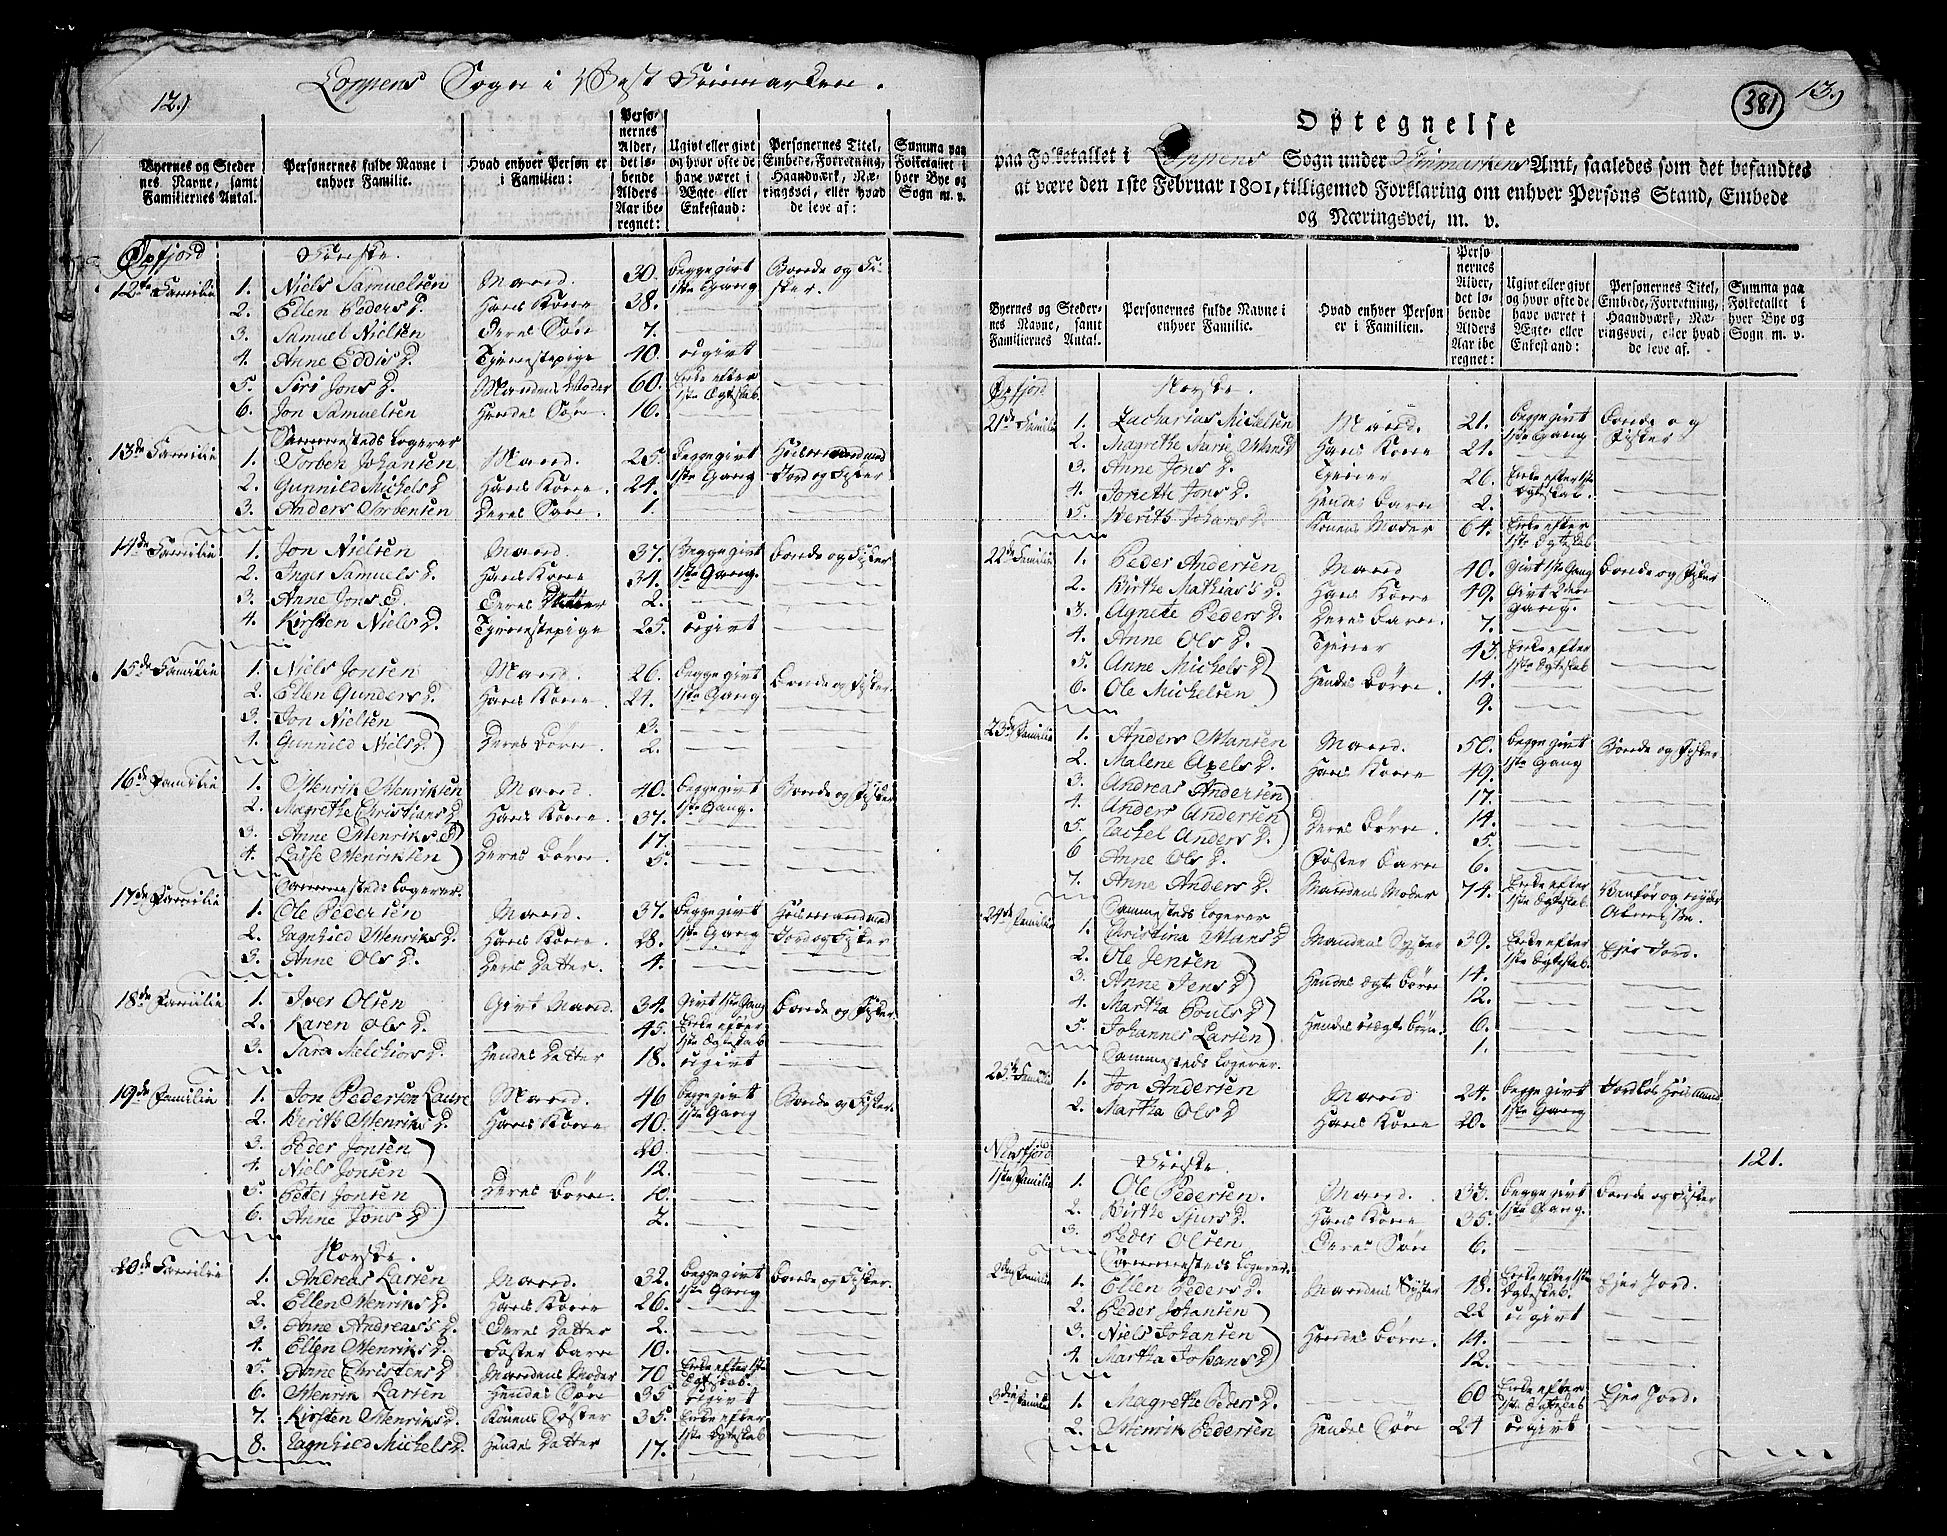 12.)
Loppens Sogn i Vest Finmarken.
Byernes og Steder
nes Navne, samt
Familiernes Antal.
Personernes fulde Navne i
enhver Familie.
Hvad enhver Person er
i Familien:
Perso-
nernes
Alder,
det lø-
bende
Alders
Aar ibe-
regnet:
Ugivt eller givt
og hvor ofte de
have været i
Ægte- eller
Enkestand:
Personernes Titel,
Embede, Forretning,
Haandværk, Næ-
ringsvei, eller hvad
de leve af:
Summa paa
Folketallet i
hver Bye og
Sogn m. v.
Øxfjord Finske.
12te Familie 1. Niels Samuelsen Mand. 30. begge givt 1ste Gang Bonde og Fisker.
2. Ellen Peders D. Hans Kone 38.
3. Samuel Nielsen Deres Søn 7.
4. Anne Eddis D. Tjenestepige 40. ugivt
5. Siri Jons D. Mandens Moder 60. Enke efter 1ste Ægteskab.
6. Jon Samuelsen Hendes Søn. 16.
Sammesteds Logerer
13de Familie 1. Torben Johansen Mand. 25. Begge givt 1ste Gang Huusmand med Jord og Fisker
2. Gunnild Michels D. Hans Kone. 24.
3. Anders Torbensen Deres Søn. 1.
14de Familie 1. Jon Nielsen Mand. 37. Begge givt 1ste Gang. Bonde og Fisker
2. Inger Samuels D. Hans Kone 34.
3. Anne Jons D. Deres Datter 2.
4. Kirsten Niels D. Tjenestepige 25. ugivt
15de Familie 1. Niels Jonsen Mand. 26. begge givt 1ste Gang Bonde og Fisker.
2. Ellen Gunders D. Hans Kone. 24.
3. Jon Nielsen 3.
4. Gunnild Niels D. Deres Børn. 2.
16de Familie 1. Henrik Henriksen Mand. 40. begge givt 1ste Gang. Bonde og Fisker
2. Magrethe Christians D. Hans Kone. 37.
3. Anne Henriks D. 17.
4. Lasse Henriksen Deres Børn. 5.
Sammesteds Logerer.
17de Familie 1. Ole Pedersen Mand. 37. begge givt 1ste Gang Huusmand med Jord og Fisker
2. Ragnhild Henriks D. Hans Kone. 28.
3. Anne Ols D. Deres Datter. 4.
18de Familie 1. Iver Olsen Givt Mand. 34. Givt 1ste Gang Bonde og Fisker
2. Karen Ols D. 45. Enke efter 1ste Ægteskab
3. Sara Melchiors D. Hendes Datter 18. ugivt
19de Familie 1. Jon Pedersen Mand. 46 begge givt 1ste Gang Bonde og Fisker
2. Berith Henriks D. Hans Kone 40.
3. Peder Jonsen 20.
4. Niels Jonsen 12.
5. Peter Jonsen Deres Børn. 10.
6. Anne Jons D. 2.
Norske.
20de Familie 1. Andreas Larsen Mand. 32. begge givt 1ste Gang Bonde og Fisker.
2. Ellen Henriks D. Hans Kone 26.
3. Anne Andreas's D. Deres Datter 2.
4. Ellen Henriks D. Foster Barn 10.
5. Anne Christens D. Mandens Moder 70 Enke efter 1ste Ægteskab.
6. Henrik Larsen Hendes Søn 35 ugivt
7. Kirsten Henriks D. Konens Søster 35. Enke efter 1ste Ægteskab
8. Ragnhild Michels D. Hendes Datter 17.
381 13.)
Optegnelse
paa Folketallet i Loppens Sogn under Finmarkens Amt, saaledes som det befandtes
at være den 1ste Februar 1801, tilligemed Forklaring om enhver Persons Stand, Embede
og Næringsvei, m. v.
Byernes og Steder-
nes Navne, samt
Familiernes Antal.
Personernes fulde Navne i
enhver Familie.
Hvad enhver Person
er i Familien.
Perso
nernes
Alder,
det lø-
bende
Alders
Aar ibe
regnet:
Ugivt eller givt
og hvor ofte de
have været i
Ægte- eller
Enkestand:
Personernes Titel,
Embede, Forretning,
Haandværk, Næ-
ringsvei, eller hvad
de leve af.
Summa paa
Folketallet i
hver Bye og
Sogn m. v.
Øxfjord Norske.
21de Familie 1. Zacharias Michelsen Mand. 21. begge givt 1ste Gang Bonde og Fisker
2. Magrethe Marie Hans D Hans Kone 21.
3. Anne Jons D. Tjener 26. Enke efter 1ste Ægteskab.
4. Jonette Jons D. Hendes Barn 2.
5. Berith Johans D. Konens Moder 64. Enke efter 1ste Ægteskab
22de Familie 1. Peder Andersen Mand 40. Givt 1ste Gang Bonde og Fisker
2. Birthe Mathias's D. Hans Kone 49. Givt 2den Gang.
3. Agnete Peders D. Deres Barn. 7.
4. Anne Ols D. Tjener 43. Enke efter 1ste Ægteskab
5. Anne Michels D. Hendes Børn. 14.
6. Ole Michelsen 9.
23de Familie 1. Anders Hansen Mand. 50. begge givt 1ste Gang Bonde og Fisker
2. Malene Axels D. Hans Kone 49.
3. Andreas Andersen 17.
4. Anders Andersen Deres Børn. 14.
5. Rachel Anders D. 5.
6 Anne Ols D. Foster Barn 6.
7. Anne Anders D. Mandens Moder 74. Enke efter 1ste Ægteskab Vanfør og nyder Almisse.
Sammesteds Logerer
24de Familie 1. Christina Hans D Mandens Syster 39. Enke efter 1ste Ægteskab. Ejer Jord.
2. Ole Jensen 14.
3. Anne Jens D Hendes Ægte Børn 12.
4. Martha Pouls D 6.
5. Johannes Larsen Hendes uægte Børn. 1.
Sammesteds Logerer.
25de Familie 1. Jon Andersen Mand 24. begge givt 1ste Gang Jordløs Huusmand
2. Martha Ols D Hans Kone 20.
121.
Nuvsfjord Finske.
1ste Familie 1. Ole Pedersen. Mand. 33. begge givt 1ste Gang. Bonde og Fisker
2. Birthe Sjurs D. Hans Kone 35.
3. Peder Olsen Deres Søn 6.
Sammesteds Logerer.
2den Familie 1. Ellen Peders D. Mandens Syster 48. Enke efter 1ste Ægteskab. Ejer Jord.
2. Peder Johansen 22 ugivt
3. Niels Johansen Hendes Børn. 14.
4. Martha Johans D 12.
3die Familie 1. Magrethe Peders D. 60 Enke efter 1ste Ægteskab Ejer Jord.
2. Henrik Pedersen Hendes Søn 24 ugivt